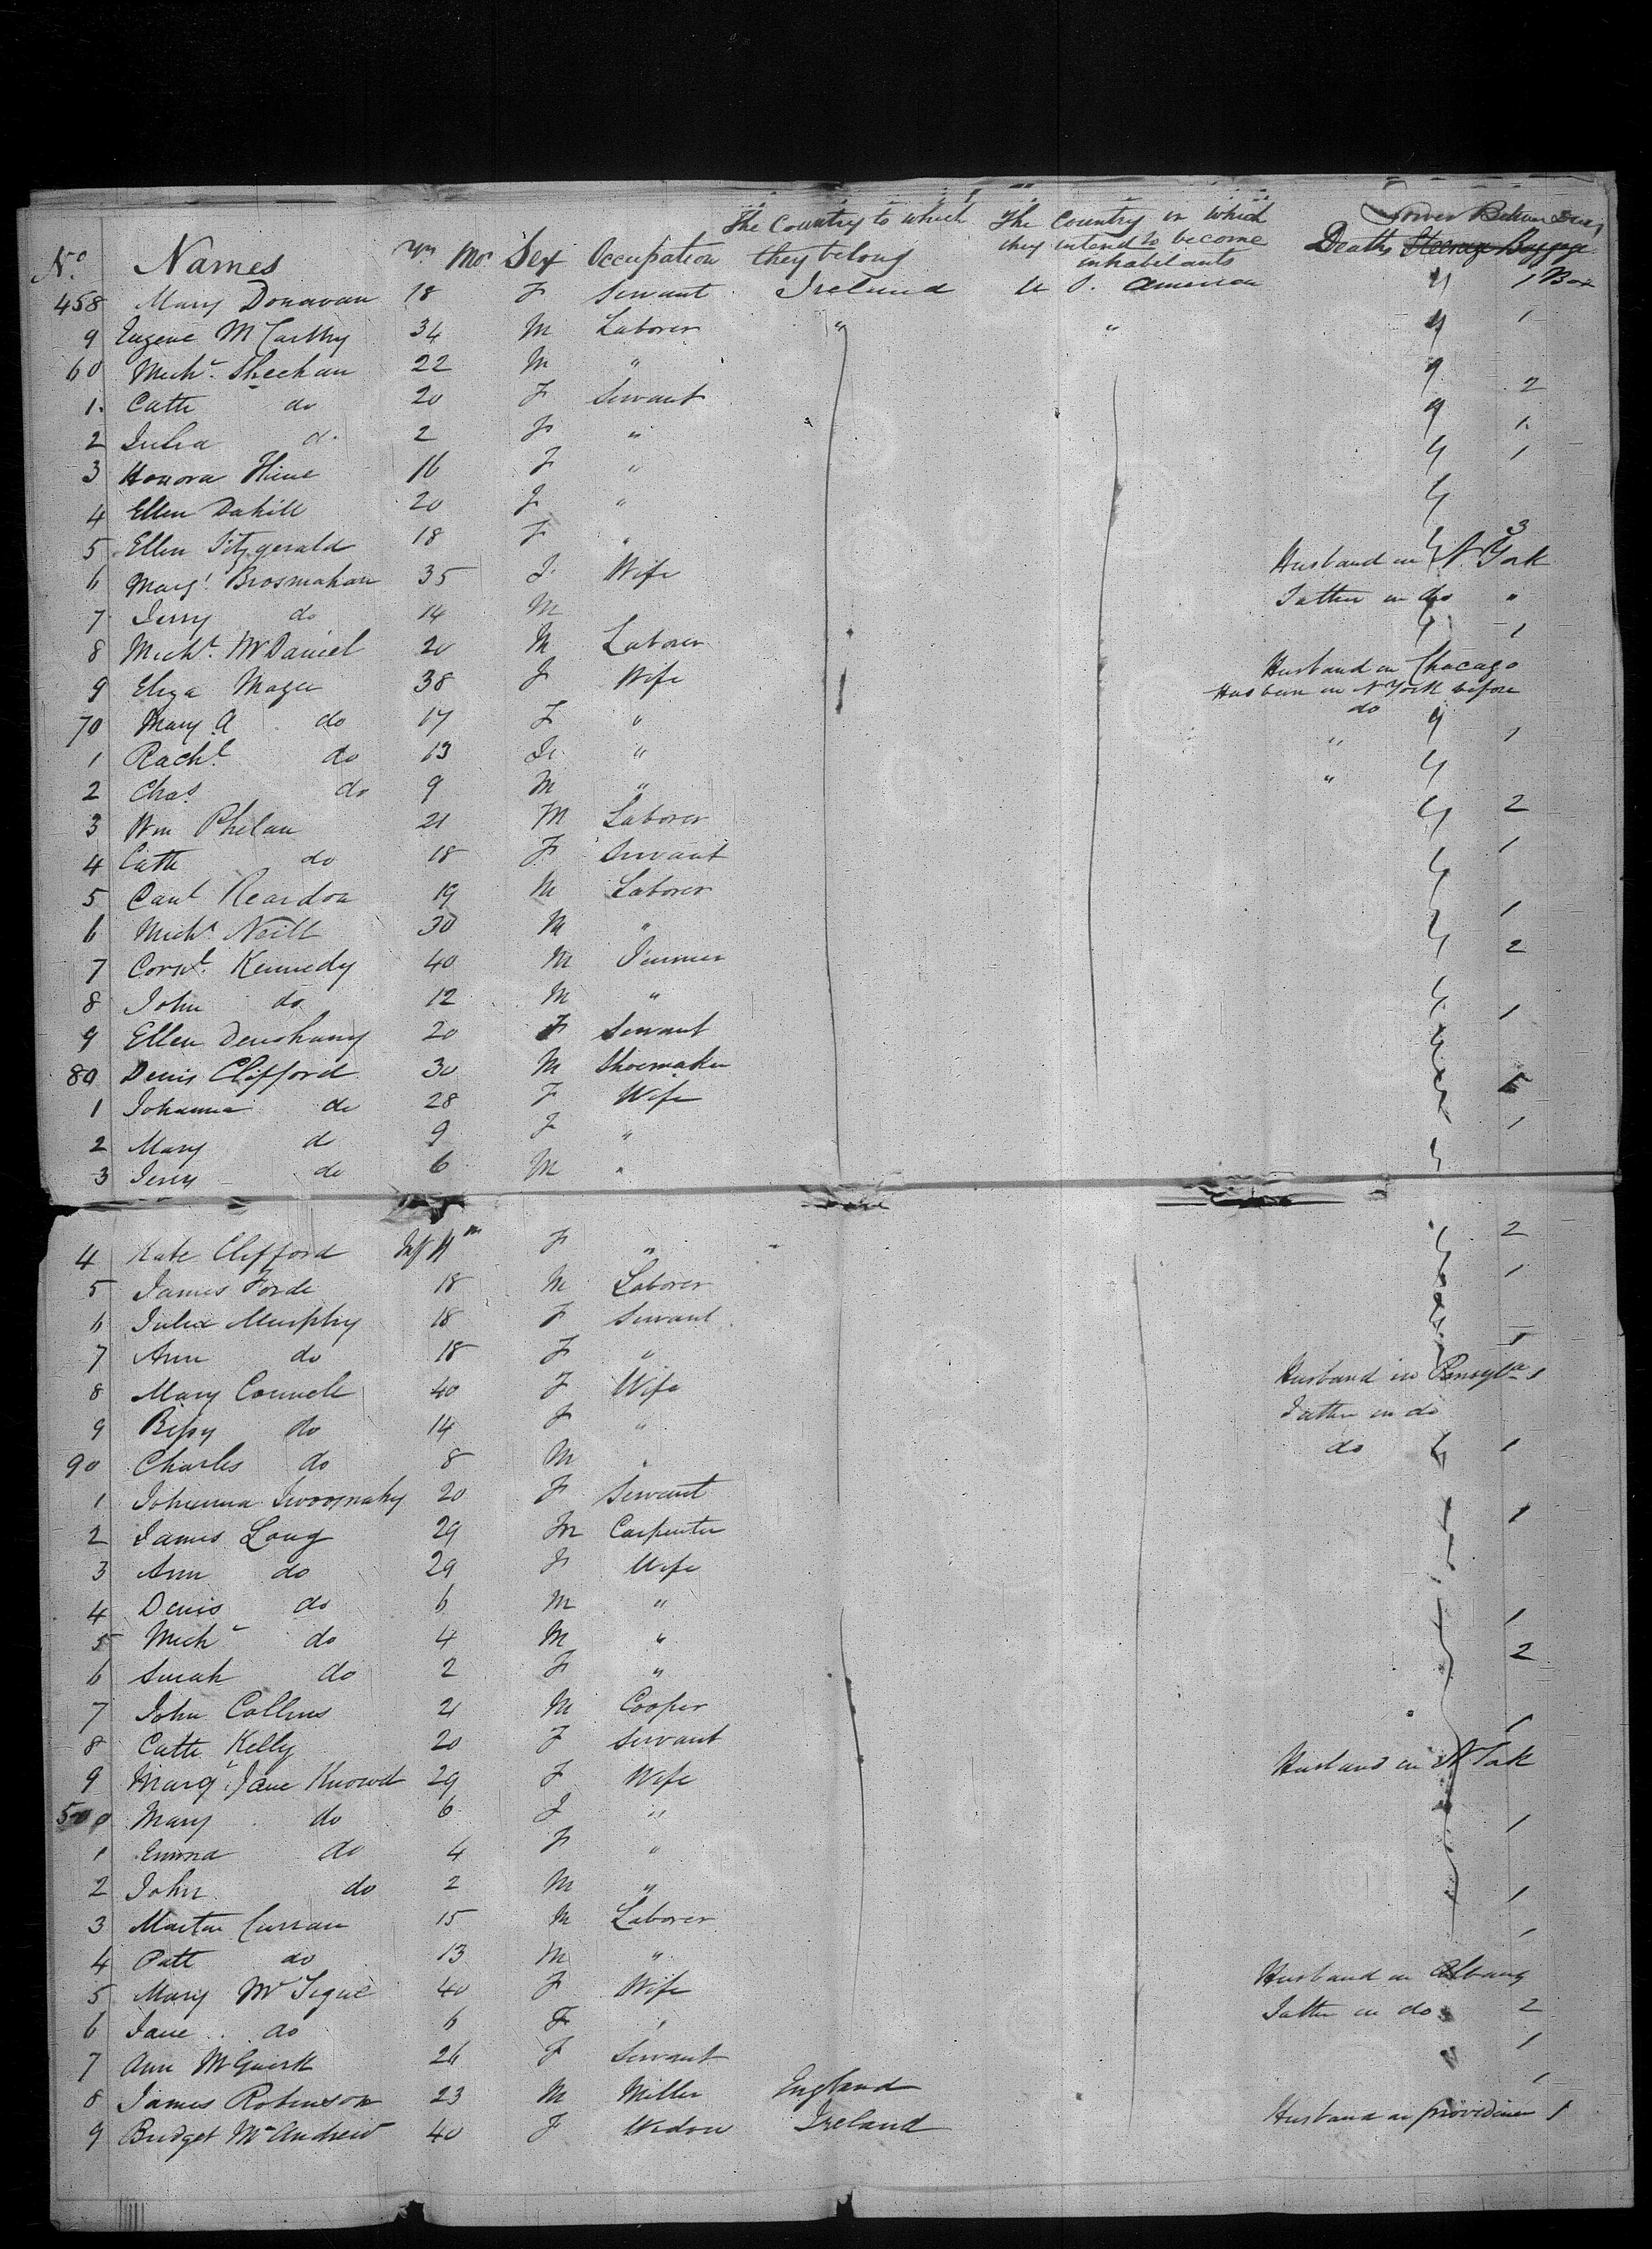 Lower Between Decks
The Country to which The Country in which
No. Names Yrs Mos Sex Occupation they belong they intend to become inhabitants Deaths Steerage Baggage
458 Mary Donavan 18 F Servant Ireland U S. America 1 Box
9 Eugene McCarthy 34 M Laborer " " 1
60 Michl. Sheehan 22 M "
1 Cath do 20 F Servant 2
2 Julia do 2 F " 1
3 Honora Hine 16 F " 1
4 Ellen Dahill 20 F "
5 Ellen Fitzgerald 18 F " 3
6 Margt. Brosmahan 35 F Wife Husband in N. York
7 Jerry do 14 M Father in do "
8 Michl. McDaniel 20 M Laborer 1
9 Eliza Magee 38 F Wife Husband in Chacago
Has been in N York before
70 Mary A do 17 F " do
1 Rachl. do 13 F " " 1
2 Chas. do 9 M " "
3 Wm Phelan 21 M Laborer 2
4 Cath do 18 F Servant 1
5 Danl Reardon 19 M Laborer
6 Michl. Neill 30 M " 1
7 Cornl. Kennedy 40 M Farmer 2
8 John do 12 M "
9 Ellen 20 F Servant 1
80 Denis Clifford 30 M Shoemaker
1 Johanna do 28 F Wife
2 Mary do 9 F " 1
3 Jerry do 6 M "
4 Kate Clifford Inf F " 2
5 James Forde 18 M Laborer 1
6 Julia Murphy 18 F Servant
7 Ann do 18 F "
8 Mary Connell 40 F Wife Husband in Pensyla 1
9 Bessy do 14 F " Father in do
90 Charles do 8 M " do 1
1 Johanna 20 F Servant
2 James Long 29 M Carpenter 1
3 Ann do 29 F Wife
4 Denis do 6 M "
5 Michl do 4 M " 1
6 Sarah do 2 F " 2
7 John Collins 21 M Cooper
8 Cath Kelly 20 F Servant 1
9 Margt. Jane 29 F Wife Husband in N York
500 Mary do 6 F "
1 Emma do 4 F " 1
2 John do 2 M "
3 Martin Curran 15 M Laborer 1
4 Patt do 13 M " 1
5 Mary McTigue 40 F Wife Husband in Albany
6 Jane do 6 F " Father in do 2
7 Ann McGuirk 26 F Servant 1
8 James Robinson 23 M Miller England 1
9 Bridget McAndrew 40 F Widow Ireland Husband in providence 1